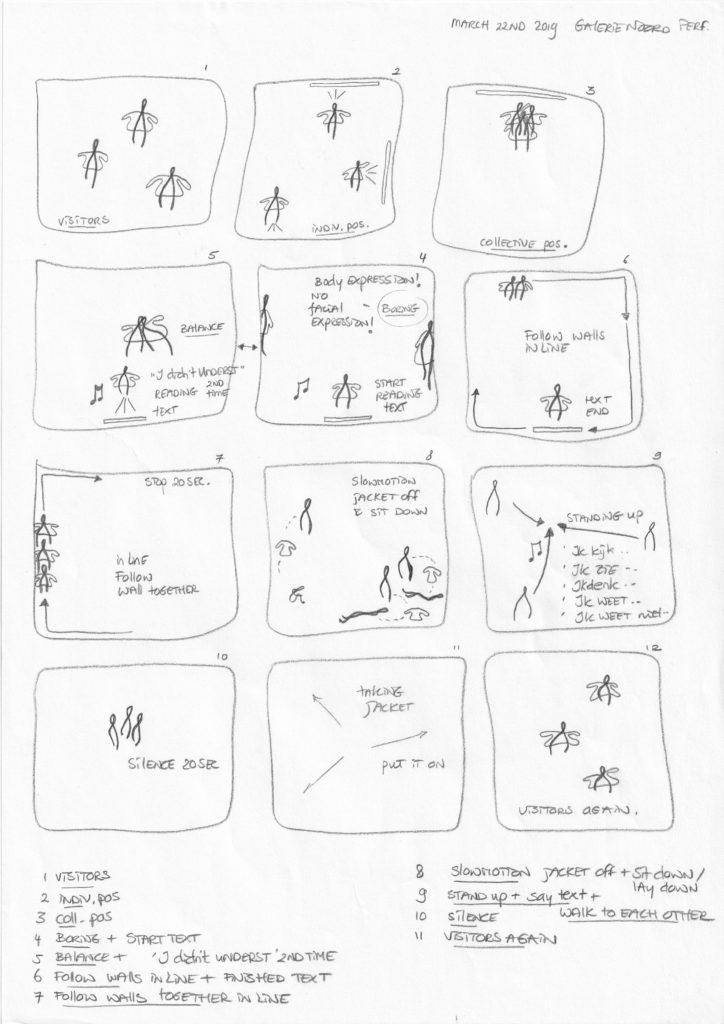 MARCH 22ND 2019 GALERIE NOORD PERF.
1
VISITORS
2
INDIV. POS.
3
COLLECTIVE POS.
5
BALANCE
"I didn't UNDERST"
READING 2ND
TIME
TEXT
4
BODY EXPRESSION!
NO
FACIAL - BORING
EXPRESSION!
START
READING
TEXT
6
FOLLOW WALLS
IN LINE
TEXT
END
7
STOP 20 SEC.
in LINE
FOLLOW
WALL TOGETHER
8
SLOWMOTION
JACKET OFF
& SIT DOWN
9
STANDING UP
' Ik kijk ..
' IK ZIE --
' Ik denk --
' IK WEET ..
' IK WEET niet --
10
SILENCE 20 SEC
11
TAKING
JACKET
PUT IT ON
12
VISITORS AGAIN.
1 VISITORS
2 INDIV. POS
3 COLL. POS
4 BORING + START TEXT
5 BALANCE + 'I didn't UNDERST' 2ND TIME
6 FOLLOW WALLS IN LINE + FINISHED TEXT
7 FOLLOW WALLS TOGETHER IN LINE
8 SLOWMOTION JACKET OFF + SIT down /
LAY down
9 STAND UP + SAY TEXT +
WALK TO EACH OTHER
10 SILENCE
11 VISITORS AGAIN